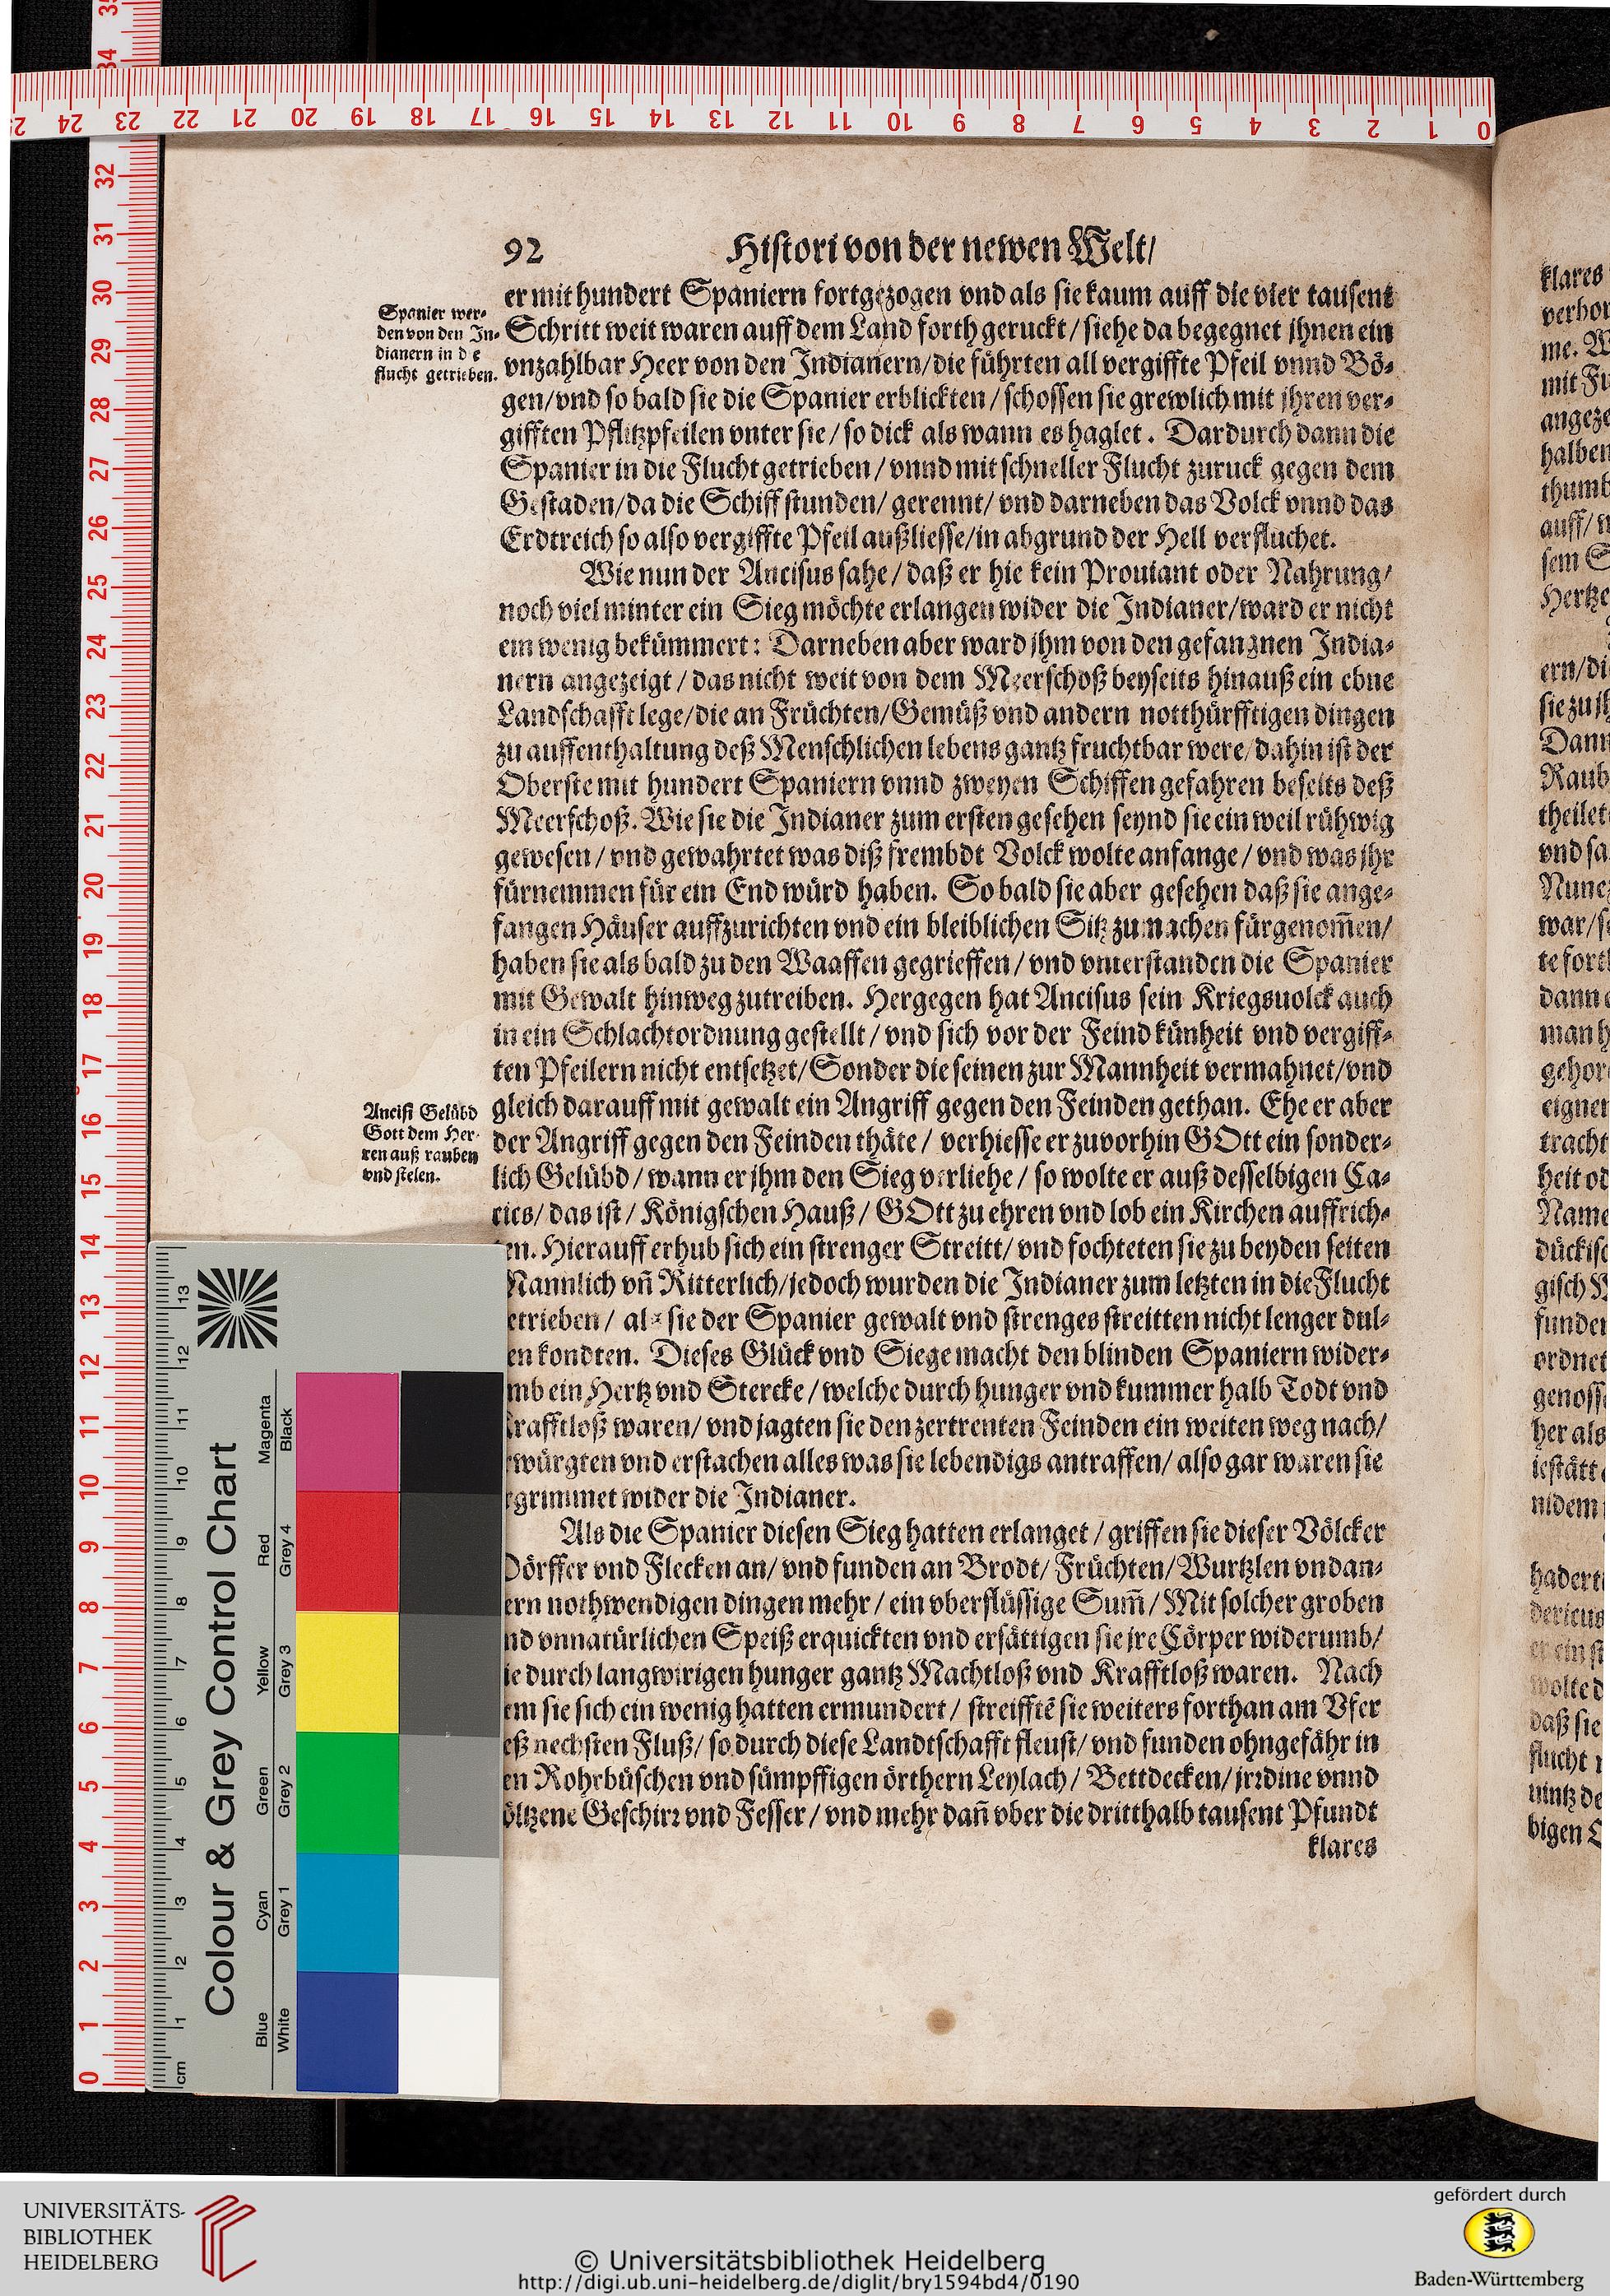 92 Histori von der newen Welt/
er mit hundert Spaniern fortgezogen vnd als sie kaum auff die vier tausent
Schritt weit waren auff dem Land forth geruckt / siehe da begegnet jhnen ein
vnzahlbar Heer von den Indianern/die führten all vergiffte Pfeil vnnd Bö-
gen/vnd so bald sie die Spanier erblickten / schossen sie grewlich mit jhren ver-
gifften Pflitzpfeilen vnter sie / so dick als wann es haglet. Dardurch dann die
Spanier in die Flucht getrieben / vnnd mit schneller Flucht zuruck gegen dem
Gestaden/da die Schiff stunden/ gerennt/ vnd darneben das Volck vnnd das
Erdtreich so also vergiffte Pfeil außliesse/in abgrund der Hell verfluchet.
Spanier wer-
den von den In-
dianern in d e
flucht getrieben.
Wie nun der Ancisus sahe / daß er hie kein Prouiant oder Nahrung/
noch viel minter ein Sieg möchte erlangen wider die Indianer/ward er nicht
ein wenig bekümmert: Darneben aber ward jhm von den gefangnen India-
nern angezeigt / das nicht weit von dem Meerschoß beyseits hinauß ein ebne
Landschafft lege/die an Früchten/Gemüß vnd andern notthürfftigen dingen
zu auffenthaltung deß Menschlichen lebens gantz fruchtbar were/dahin ist der
Oberste mit hundert Spaniern vnnd zweyen Schiffen gefahren beseits deß
Meerschoß. Wie sie die Indianer zum ersten gesehen seynd sie ein weil rühwig
gewesen / vnd gewahrtet was diß frembdt Volck wolte anfange / vnd was jhr
fürnemmen für ein End würd haben. So bald sie aber gesehen daß sie ange-
fangen Häuser auffzurichten vnd ein bleiblichen Sitz zu machen fürgenom̄en/
haben sie als bald zu den Waaffen gegrieffen / vnd vnterstanden die Spanier
mit Gewalt hinweg zutreiben. Hergegen hat Ancisus sein Kriegsuolck auch
in ein Schlachtordnung gestellt / vnd sich vor der Feind künheit vnd vergiff-
ten Pfeilern nicht entsetzet/Sonder die seinen zur Mannheit vermahnet/vnd
gleich darauff mit gewalt ein Angriff gegen den Feinden gethan. Ehe er aber
der Angriff gegen den Feinden thäte / verhiesse er zuvorhin GOtt ein sonder-
lich Gelübd / wann er jhm den Sieg verliehe / so wolte er auß desselbigen Ca-
cics/ das ist / Königschen Hauß / GOtt zu ehren vnd lob ein Kirchen auffrich-
Ancisi Gelübd
Gott dem Her-
ren auß rauben
vnd stelen.
en. Hierauff erhub sich ein strenger Streitt/ vnd fochteten sie zu beyden seiten
Mannlich vn̄ Ritterlich/jedoch wurden die Indianer zum letzten in die Flucht
etrieben / als sie der Spanier gewalt vnd strenges streitten nicht lenger dul-
en kondten. Dieses Glück vnd Siege macht den blinden Spaniern wider-
mb ein Hertz vnd Stercke / welche durch hunger vnd kummer halb Todt vnd
rafftloß waren/ vnd jagten sie den zertrenten Feinden ein weiten weg nach/
rwürgten vnd erstachen alles was sie lebendigs antraffen/ also gar waren sie
rgrimmet wider die Indianer.
Als die Spanier diesen Sieg hatten erlanget / griffen sie dieser Völcker
Dörffer vnd Flecken an/ vnd funden an Brodt/ Früchten/ Wurtzlen vnd an-
ern nothwendigen dingen mehr / ein vberflüssige Sum̄/ Mit solcher groben
nd vnnatürlichen Speiß erquickten vnd ersättigen sie jre Cörper widerumb/
ie durch langwirigen hunger gantz Machtloß vnd Krafftloß waren. Nach
em sie sich ein wenig hatten ermundert / streifftē sie weiters forthan am Vfer
eß nechsten Fluß/ so durch diese Landtschafft fleust/ vnd funden ohngefähr in
en Rohrbüschen vnd sümpffigen örthern Leylach/ Bettdecken/ jrrdine vnnd
öltzene Geschirr vnd Fesser / vnd mehr dan̄ vber die dritthalb tausent Pfundt
klares
klares
verhor
me. W
mit Fu
angeze
halben
thumb
auff/
sem S
Hertze
ern/di
sie zu jh
Dann
Raub
theilet
vnd sa
Nunez
war/s
te fort
dann
man h
gehor
eigner
tracht
heit od
Name
dückisc
gisch
funden
ordnet
genoss
her als
iestätt
nidem
hadert
dericus
er ein st
wolte d
daß sie
flucht
uintz de
bigen
Colour & Grey Control Chart
Magenta Red Yellow Green Cyan Blue
Black Grey 4 Grey 3 Grey 2 Grey 1 White
cm 1 2 3 4 5 6 7 8 9 10 11 12 13
24 23 22 21 20 19 18 17 16 15 14 13 12 11 10 9 8 7 6 5 4 3 2 1 0
35 34 32 31 30 29 28 27 26 25 24 23 22 21 20 19 18 17 16 15 14 13 12 11 10 9 8 7 6 5 4 3 2 1 0
UNIVERSITÄTS-
BIBLIOTHEK
HEIDELBERG
© Universitätsbibliothek Heidelberg
http://digi.ub.uni-heidelberg.de/diglit/bry1594bd4/0190
gefördert durch
Baden-Württemberg